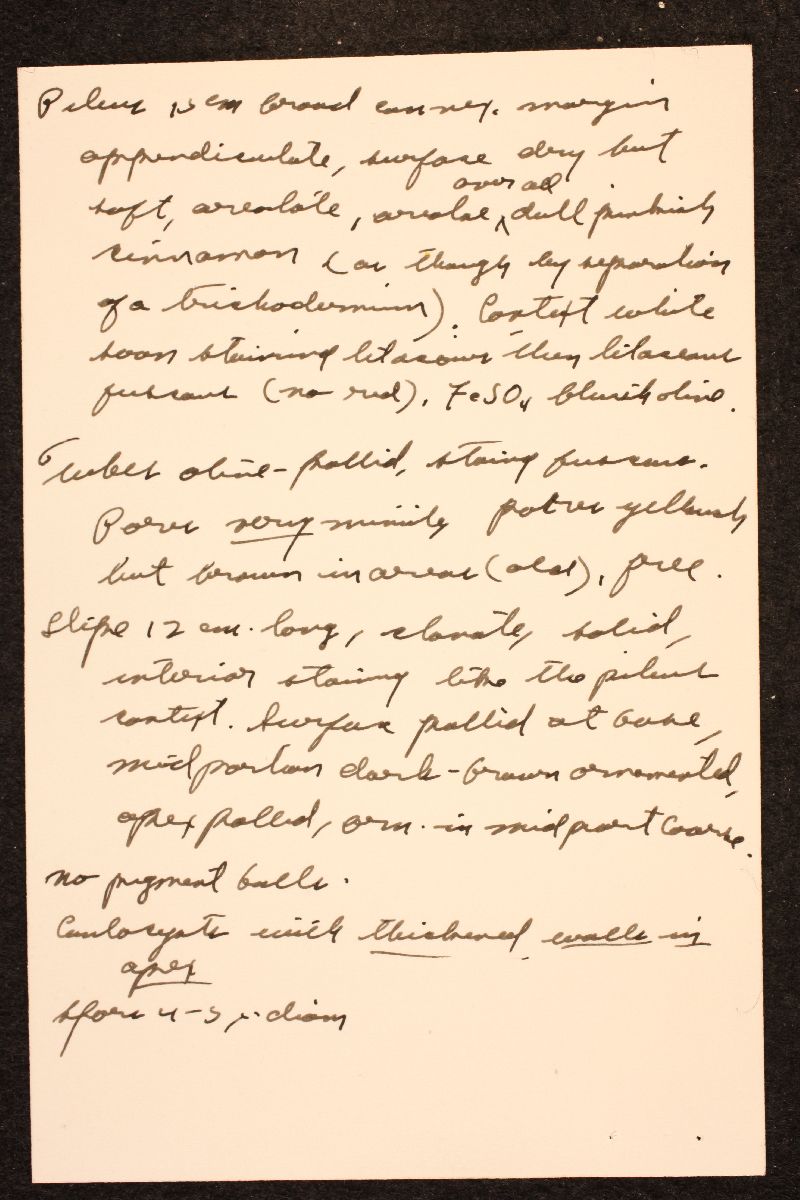 Pileus 15 cm broad convex. margin
appendiculate, surface dry but
soft, areolate, areolae ^ over all dull pinkish
cinnamon (as though by separation
of a trichodermium). Context white
soon staining lilaceous then lilaceous
fuscous (no red), FeSO4 bluish olive.
Tubes olive-pallid, staing fuscous.
Pores very minute yellowish
but brown in areas (old), free.
Stipe 12 cm. long, clavate, solid,
interior staining like the pileus
context. Surface pallid at base,
midportion dark-brown ornamented,
apex pallid, orn. in midpart coarse.
no pigment balls.
Caulocysts with thickened walls in
apex
spore 4-5 µ. diam